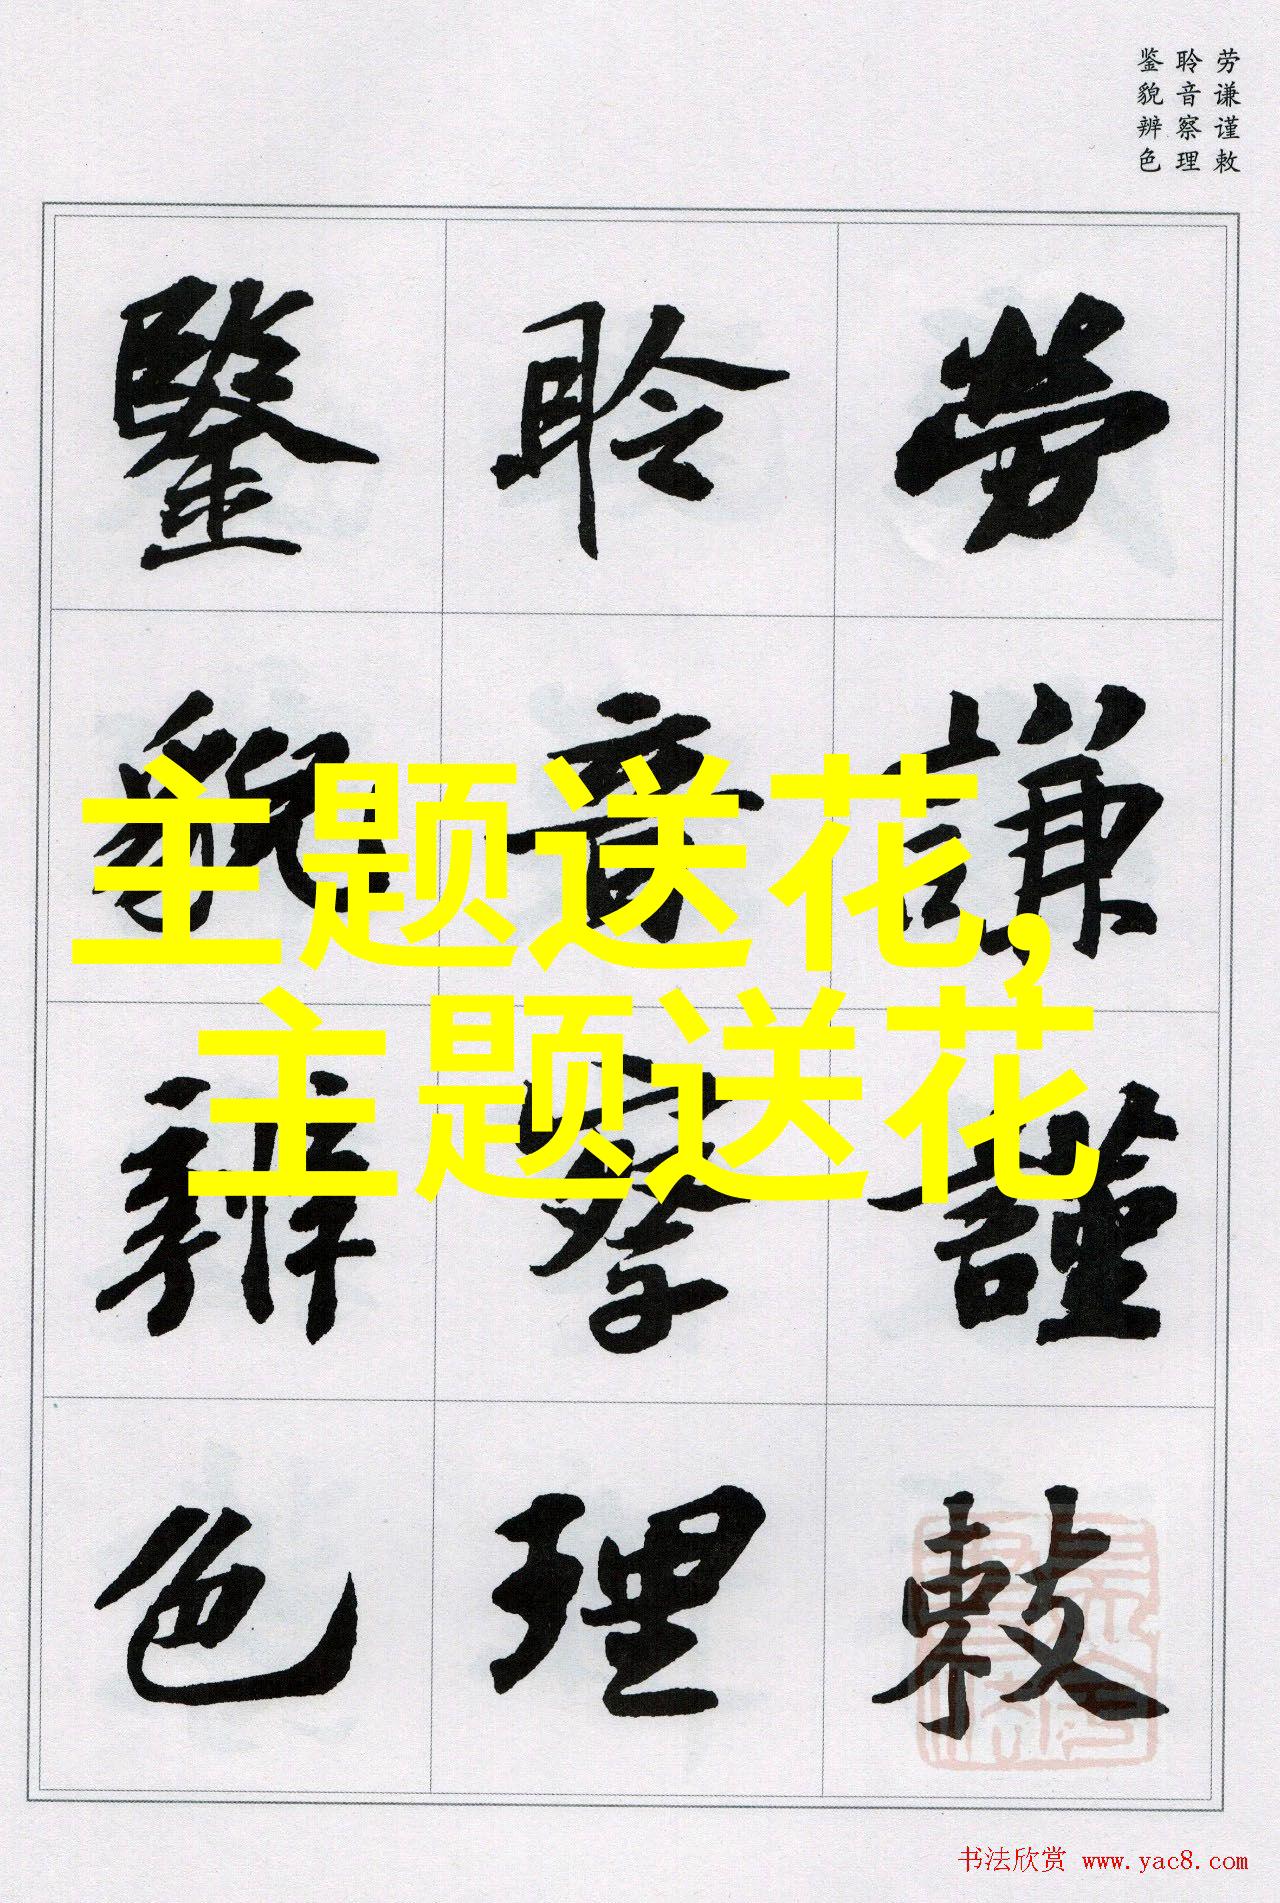 劳谦谨敕
聆音察理
鉴貌辨色
勞謙謹敕
聆音察理
鑒貌辨色
主题送花,
主题送花
书法欣赏 www.yac8.com